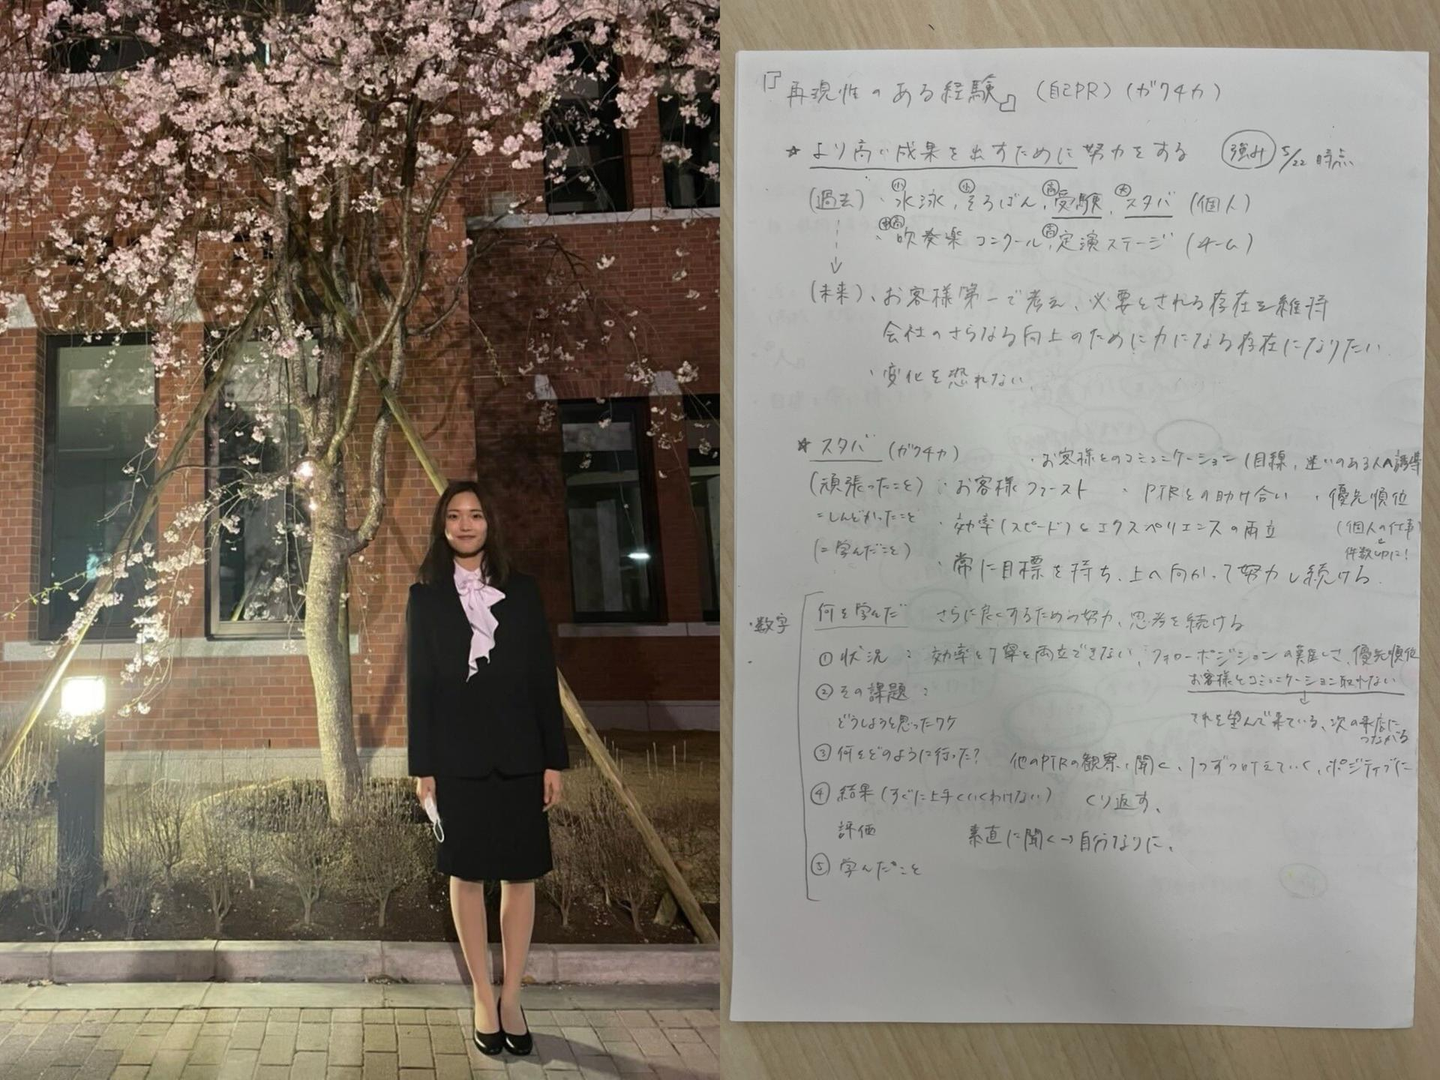 『再現性のある経験』(自己PR)(ガクチカ)
☆ より高い成果を出すために努力をする 強み 5/22 時点
(過去)・小 水泳, 小 そろばん, 高 受験, 大 スタバ (個人)
・中高 吹奏楽コンクール, 高 定演ステージ (チーム)
(未来)・お客様第一で考え、必要とされる存在を維持
会社のさらなる向上のために力になる存在になりたい
・変化を恐れない
☆ スタバ (ガクチカ) ・お客様とのコミュニケーション (目線, 迷いのある人へ誘導
(頑張ったこと)・お客様ファースト ・PTRとの助け合い ・優先順位
=しんどかったこと ・効率(スピード)とエクスペリエンスの両立 (個人の仕事
(=学んだこと) 件数
・常に目標を持ち、上へ向かって努力し続ける
・数字
何を学んだ さらに良くするための努力、思考を続ける
① 状況 : 効率と丁寧を両立できない, フォローポジションの難しさ, 優先順位
お客様とコミュニケーション取れない
② その課題 :
どうしようと思ったワケ それを望んで来ている、次の来店に
つながる
③ 何をどのように行った? 他のPTRの観察, 聞く, 1つずつ叶えていく, ポジティブに
④ 結果 (すぐに上手くいくわけない) くり返す、
評価 素直に聞く→自分なりに、
⑤ 学んだこと